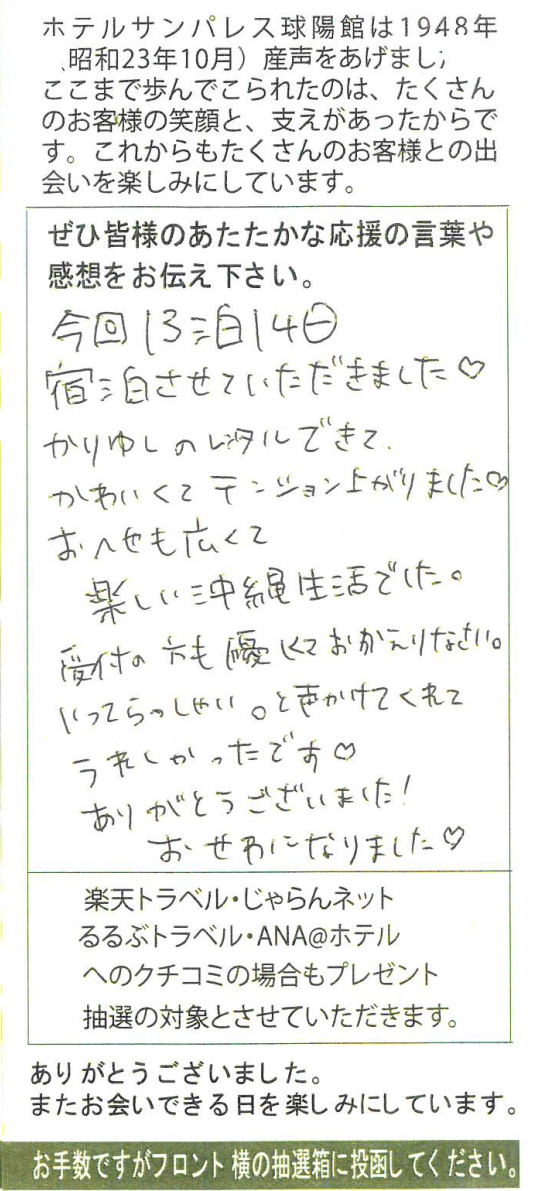 ホテルサンパレス球陽館は1948年
昭和23年10月）産声をあげまし
ここまで歩んでこられたのは、たくさん
のお客様の笑顔と、支えがあったからで
す。これからもたくさんのお客様との出
会いを楽しみにしています。
ぜひ皆様のあたたかな応援の言葉や
感想をお伝え下さい。
今回13泊14日
宿泊させていただきました♡
かりゆしのレンタルできて、
かわいくてテンション上がりました♡
おへやも広くて
楽しい沖縄生活でした。
受付の方も優しくておかえりなさい。
いってらっしゃい。と声かけてくれて
うれしかったです♡
ありがとうございました!
おせわになりました♡
楽天トラベル・じゃらんネット
るるぶトラベル・ANA@ホテル
へのクチコミの場合もプレゼント
抽選の対象とさせていただきます。
ありがとうございました。
またお会いできる日を楽しみにしています。
お手数ですがフロント横の抽選箱に投函してください。